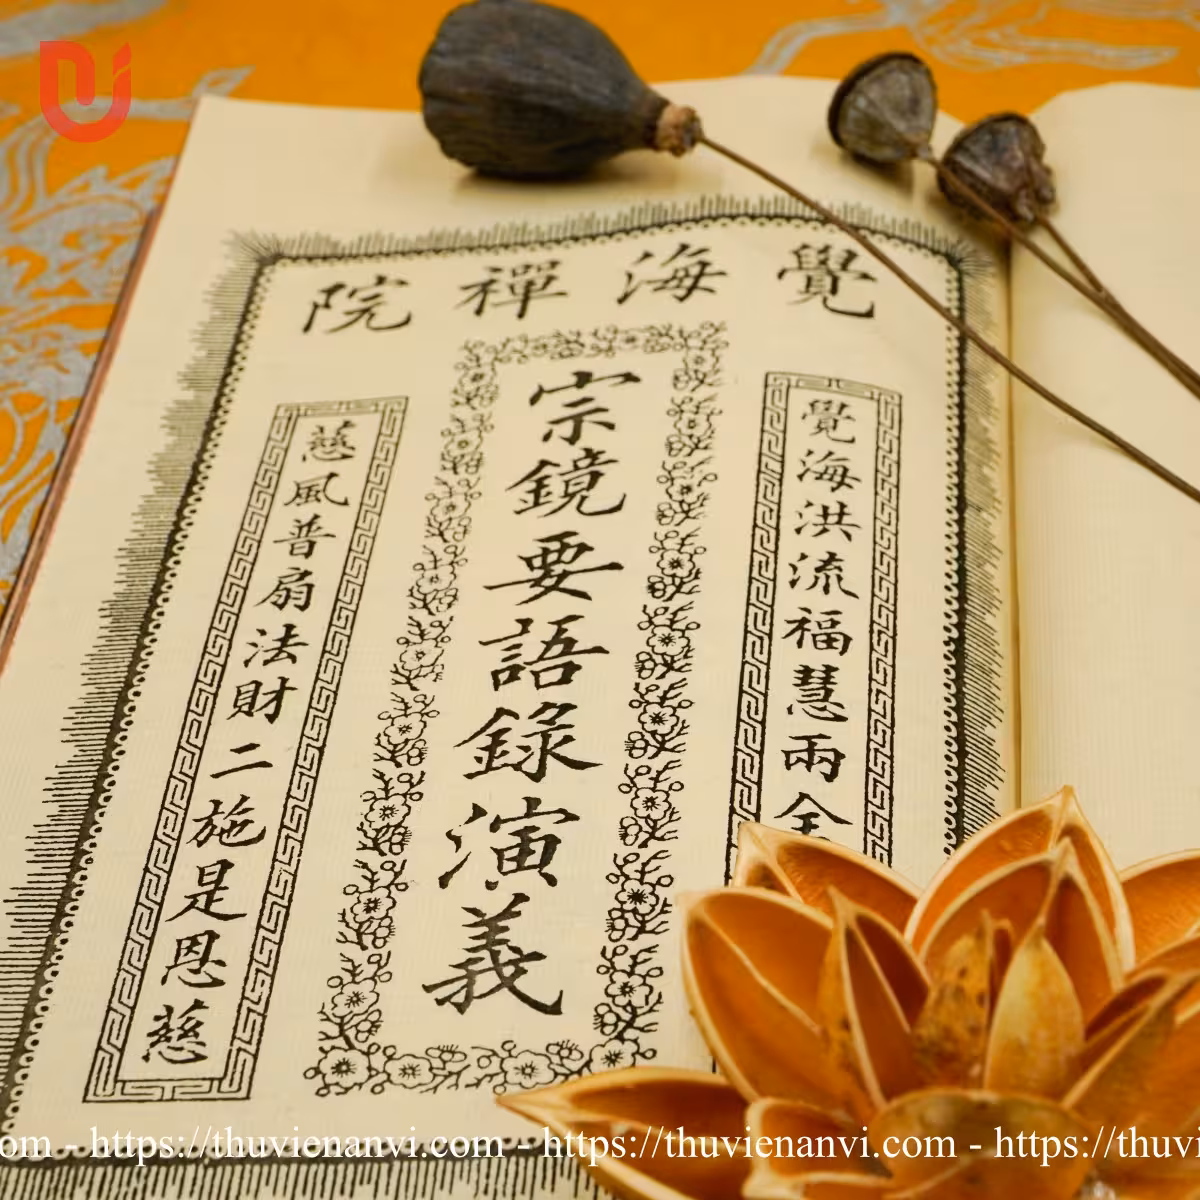 覺海禪院
覺海洪流福慧兩全
宗鏡要語錄演義
慈風普扇法財二施是恩慈
om - https://thuvienanvi.com - https://thuvienanvi.com - https://thuvi